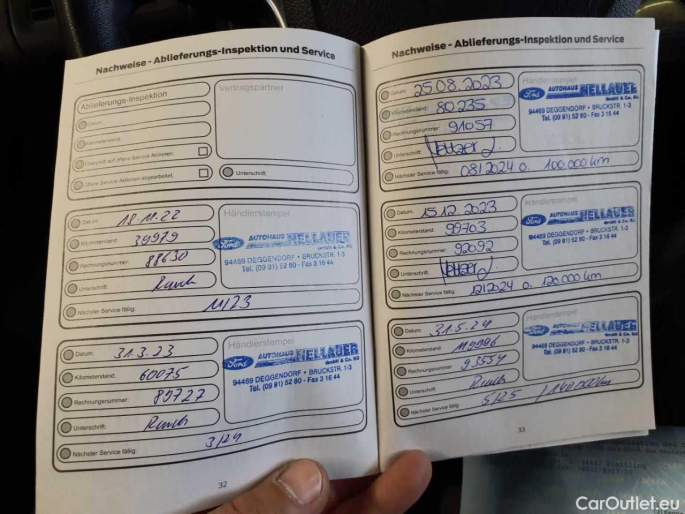 Nachweise - Ablieferungs-Inspektion und Service
Ablieferungs-Inspektion
Datum:
Kilometerstand:
Überprüft auf offene Service Aktionen:
Offene Service Aktionen abgearbeitet:
Vertragspartner
Unterschrift:
Datum: 18.11.22
Kilometerstand: 39979
Rechnungsnummer: 88630
Unterschrift:
Nächster Service fällig: 11/23
Händlerstempel
Ford AUTOHAUS HELLAUER
GmbH & Co. KG
94469 DEGGENDORF • BRUCKSTR. 1-3
Tel. (09 91) 52 80 - Fax 3 16 44
Datum: 31.3.23
Kilometerstand: 60075
Rechnungsnummer: 89727
Unterschrift:
Nächster Service fällig: 3/24
Händlerstempel
Ford AUTOHAUS HELLAUER
GmbH & Co. KG
94469 DEGGENDORF • BRUCKSTR. 1-3
Tel. (09 91) 52 80 - Fax 3 16 44
32
Nachweise - Ablieferungs-Inspektion und Service
Datum: 25.08.2023
Kilometerstand: 80.235
Rechnungsnummer: 91057
Unterschrift:
Nächster Service fällig: 08/2024 o. 100.000 km
Händlerstempel
Ford AUTOHAUS HELLAUER
GmbH & Co. KG
94469 DEGGENDORF • BRUCKSTR. 1-3
Tel. (09 91) 52 80 - Fax 3 16 44
Datum: 15.12.2023
Kilometerstand: 99703
Rechnungsnummer: 92092
Unterschrift:
Nächster Service fällig: 12/2024 o. 120.000 km
Händlerstempel
Ford AUTOHAUS HELLAUER
GmbH & Co. KG
94469 DEGGENDORF • BRUCKSTR. 1-3
Tel. (09 91) 52 80 - Fax 3 16 44
Datum: 31.5.24
Kilometerstand: 119996
Rechnungsnummer: 93554
Unterschrift:
Nächster Service fällig: 5/25 / 140.000 km
Händlerstempel
Ford AUTOHAUS HELLAUER
GmbH & Co. KG
94469 DEGGENDORF • BRUCKSTR. 1-3
Tel. (09 91) 52 80 - Fax 3 16 44
33
CarOutlet.eu